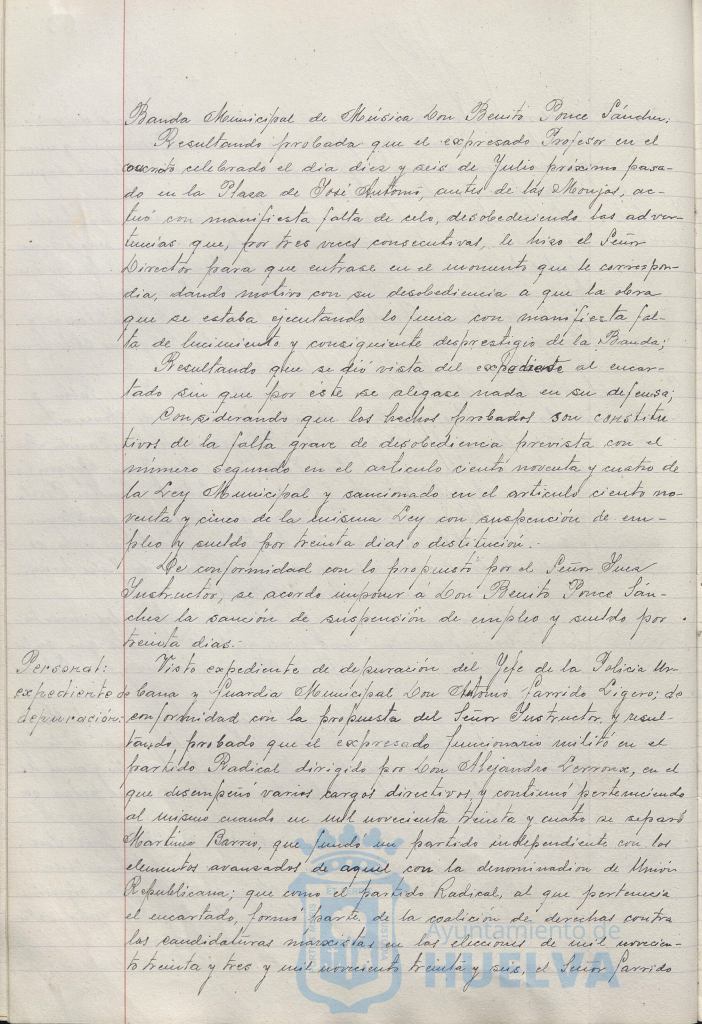 Banda Municipal de Música Don Benito Ponce Sánchez;
Resultando probada que el expresado Profesor en el
concierto celebrado el dia diez y seis de Julio próximo pasa-
do en la Plaza de José Antonio, antes de las Monjas, ac-
tuó con manifiesta falta de celo, desobedeciendo las adver-
tencias que, por tres veces consecutivas, le hizo el Señor
Director para que entrase en el momento que le correspon-
dia, dando motivo con su desobediencia a que la obra
que se estaba ejecutando lo fuera con manifiesta fal-
ta de lucimiento y consiguiente desprestigio de la Banda;
Resultando que se dió vista del expediente al encar-
tado sin que por éste se alegase nada en su defensa;
Considerando que los hechos probados son constitu
tivos de la falta grave de desobediencia prevista con el
número segundo en el articulo ciento noventa y cuatro de
la Ley Municipal y sancionado en el articulo ciento no-
venta y cinco de la misma Ley con suspención de em-
pleo y sueldo por treinta dias o destitución.-
De conformidad con lo propuesto por el Señor Juez
Instructor, se acordo imponer a Don Benito Ponce Sán-
chez la sanción de suspensión de empleo y sueldo por
treinta dias.-
Personal:
expediente de
depuración:
Visto expediente de depuración del Jefe de la Policia Ur-
bana y Guardia Municipal Don Antonio Garrido Ligero; de
conformidad con la propuesta del Señor Instructor, y resul-
tando, probado que el expresado funcionario militó en el
partido Radical dirigido por Don Alejandro Lerroux, en el
que desempeño varios cargos directivos, y continuó perteneciendo
al mismo cuando en mil novecienta treinta y cuatro se separó
Martinez Barrio, que fundó un partido independiente con los
elementos avanzados de aquel con la denominacion de Unión
Republicana; que como el partido Radical, al que pertenecia
el encartado, formó parte de la coalición de derechas contra
las candidaturas marxistas en las elecciones de mil novecien-
to treinta y tres y mil noveciento treinta y seis, el Señor Garrido
Ayuntamiento de
HUELVA